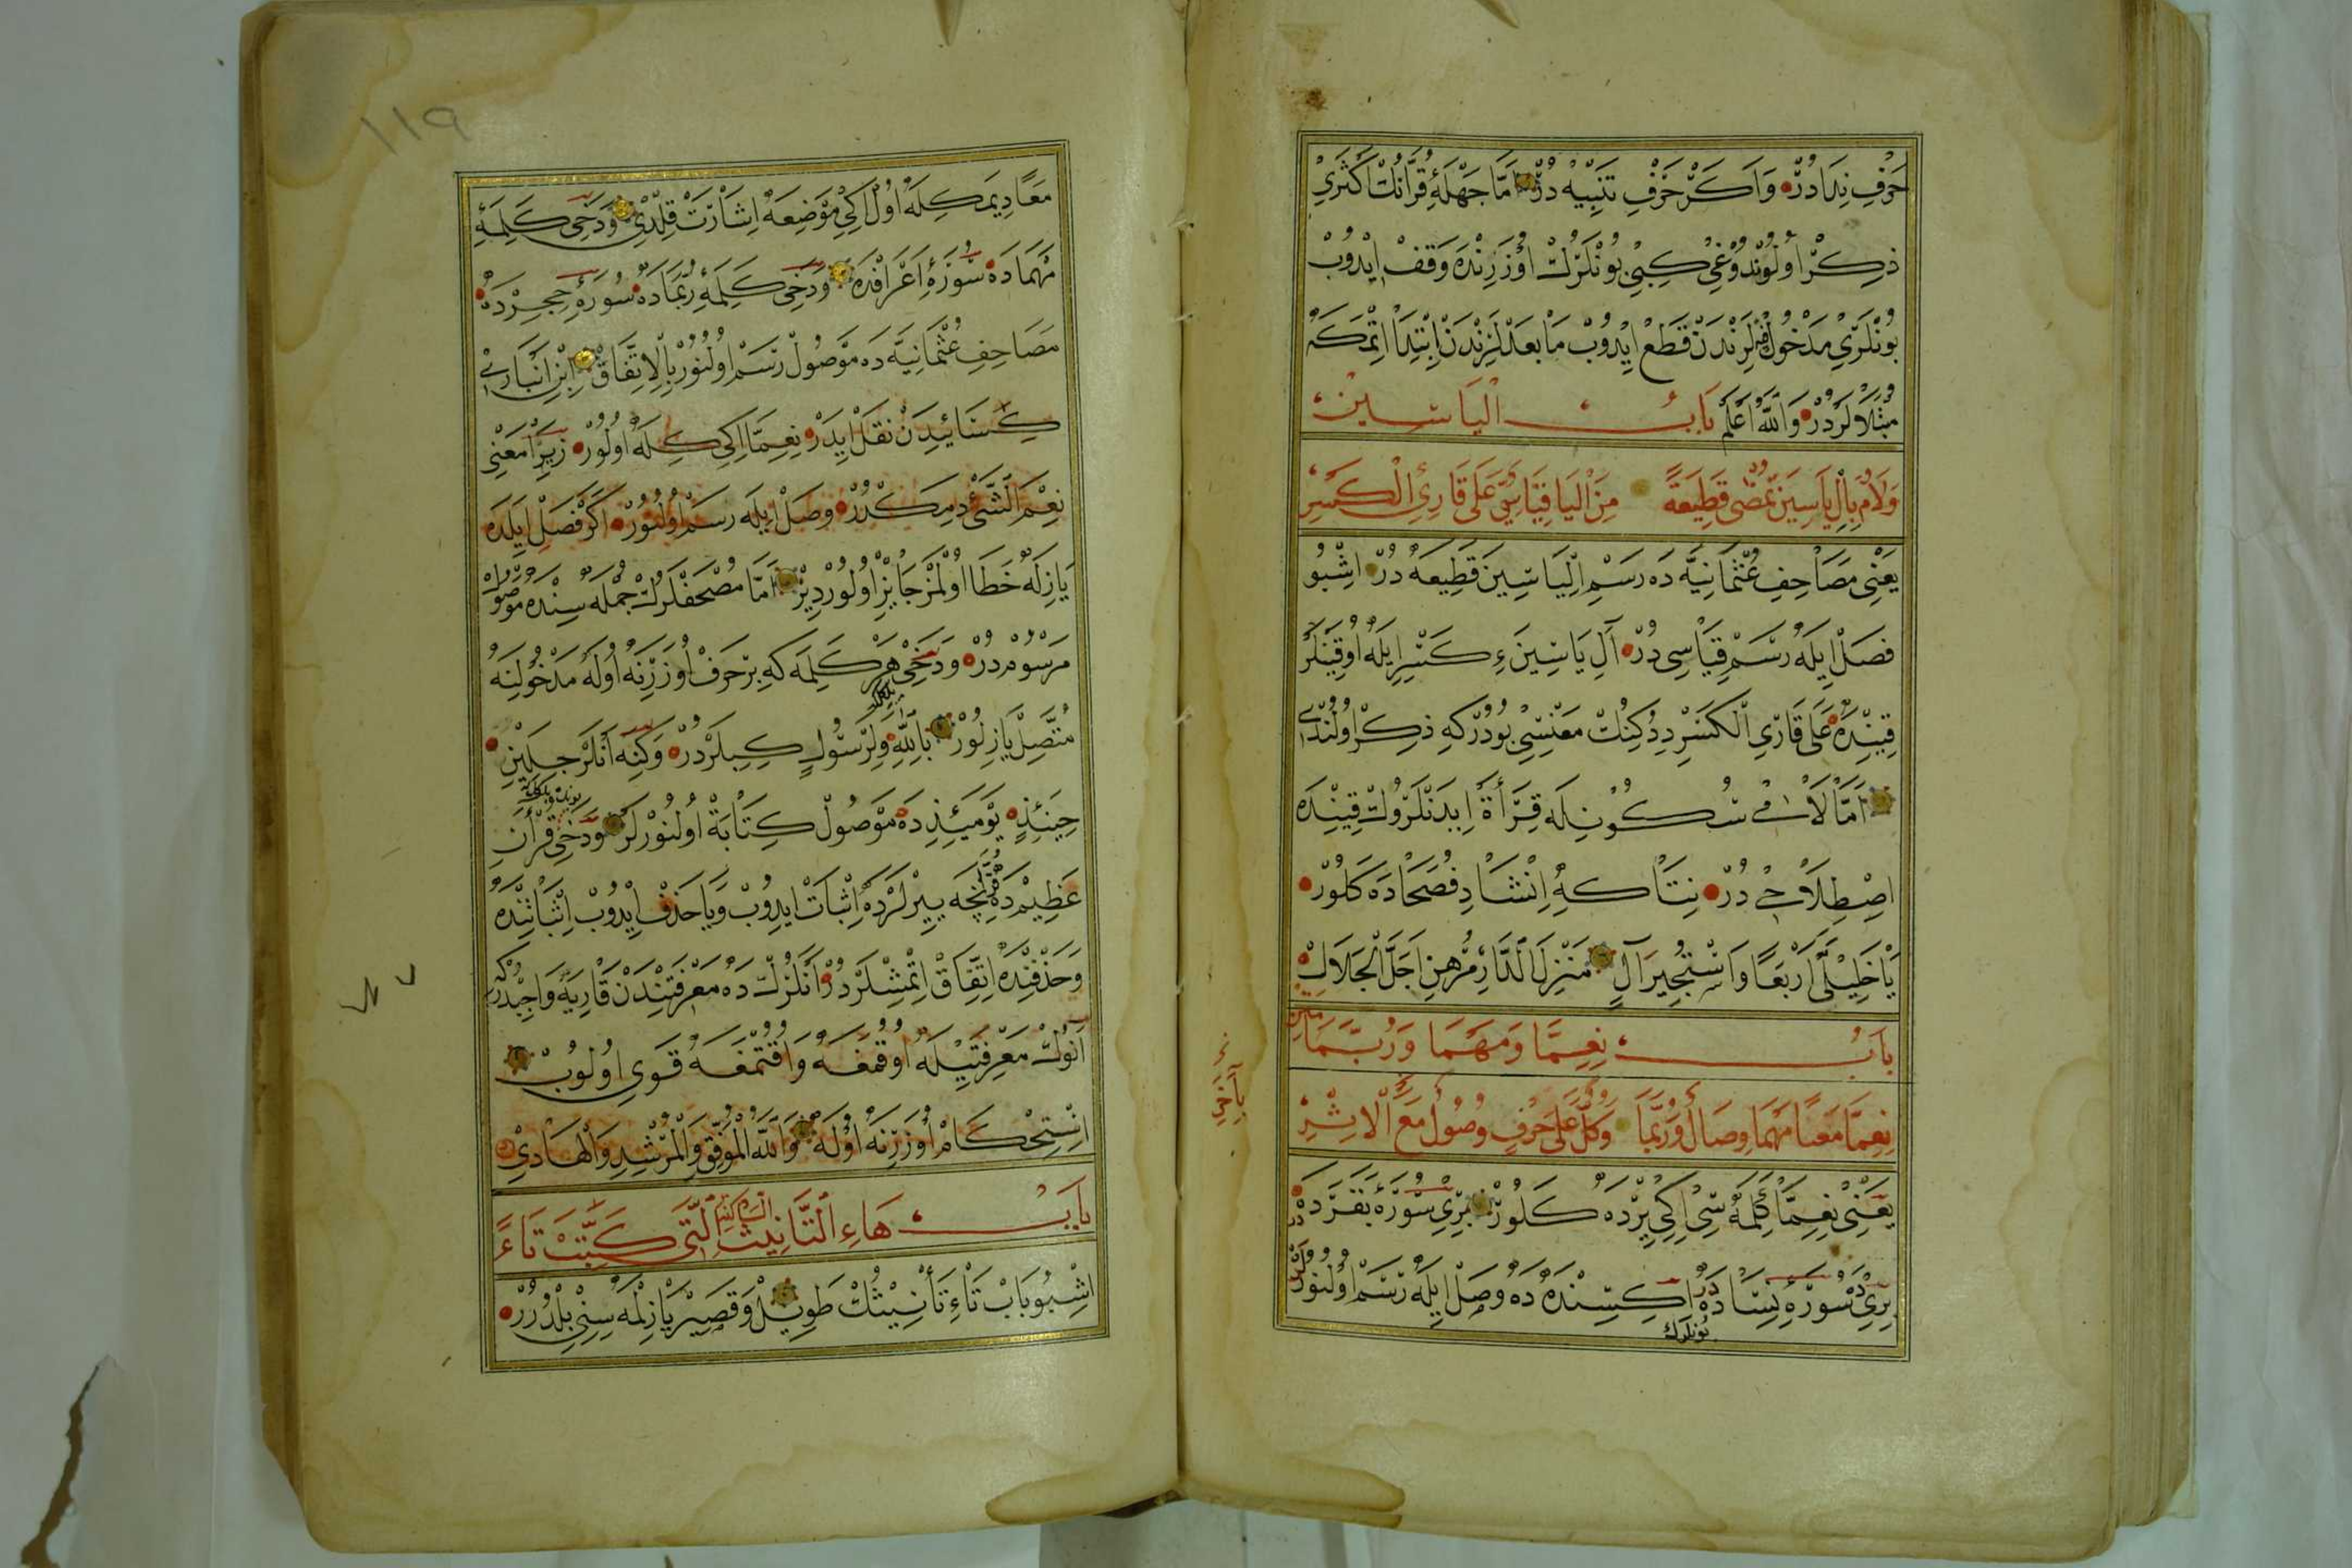 حَرْفِ نِدَادُرْ وَاَكَرْ حَرْفِ تَنْبِيهْ دُرْ اَمَّا جَهْلَهٔ قُرْاٰنُكْ اَكْثَرِىْ
ذِكْرْ اُولُوندُوغِى كِبِى بُونْلَرُكْ اُوزَرِنْدَه وَقْفْ اِيْدُوبْ
بُونْلَرِى مَدْخُوللَرِنْدَنْ قَطْعْ اِيْدُوبْ مَا بَعْدْلَرِنْدَنْ اِبْتِدَا اِتْمَكَه
مُبْتَلَالَرْدُرْ وَاللّٰهُ اَعْلَمْ بَابُ اِلْيَاسِينَ
وَلَامُ بِاِلْ يَاسِينَ تُمْضٰى قَطِيعَةً مِنَ الْيَا قِيَاسِىٌّ عَلٰى قَارِئِ الْكَسْرِ
يَعْنِى مَصَاحِفِ عُثْمَانِيَّه دَه رَسْمِ اِلْيَاسِينَ قَطِيعَه دُرْ اِشْبُو
فَصْلْ اِيلَه رَسْمْ قِيَاسِى دُرْ اٰلِ يَاسِينَ ءِ كَسْرِ اِيلَه اُوقِيَنْلَرْ
قِيْنِدَه عَلٰى قَارِئِ الْكَسْرِ دِدُكِنُكْ مَعْنِسِى بُودُرْكِه ذِكْرْ اُولُنْدِى
اَمَّا لَامِى سُكُونِلَه قِرَأَةْ اِيدَنْلَرُوكْ قِيْنِدَه
اِصْطِلَاحِى دُرْ نِتَاكِه اِنْشَادِ فُصَحَادَه كَلُورْ
يَا خَلِيلَىَّ اَرْبَعًا وَاسْتَجِيرَ اٰلِ مَنْزِلَ الدَّارِ مُرْهِنِ اَجَلَّ الْجَلَالِ
بَابُ نِعِمَّا وَمَهْمَا وَرُبَّمَا
نِعِمَّا مَعًا مَهْمَا وِصَالٌ وَرُبَّمَا وَكُلٌّ عَلٰى حَرْفٍ وُصُولٌ مَعَ الْاِثْرِ
يَعْنِى نِعِمَّا كَلِمَه سِى اِكِى يِرْدَه كَلُورْ بِرِى سُورَهٔ بَقَرَدَه
بِرِىْ دَه سُورَهٔ نِسَادَه دُرْ اِكِسِنْدَه دَه وَصْلْ اِيلَه رَسْمْ اُولُنُورْلَرْ
بُونْلَرُكْ
١١٩
مَعًا دِيمَكِلَه اُولْ اِكِى مَوْضِعَه اِشَارَتْ قِلْدِى وَدَخِى كَلِمَهٔ
مَهْمَادَه سُورَهٔ اَعْرَافْدَه وَدَخِى كَلِمَهٔ رُبَمَادَه سُورَهٔ حِجِرْدَه
مَصَاحِفِ عُثْمَانِيَّه دَه مَوْصُولْ رَسْمْ اُولُنُورْ بِالْاِتِّفَاقْ اِبْنِ اَنْبَارِى
كِسَائِيدَنْ نَقْلْ اِيدَرْ نِعِمَّا اِكِى كِلْمَه اُولُورْ زِيرَا مَعْنِى
نِعْمَ الشَّىْءُ دِمَكْدُرْ وَصْلْ اِيلَه رَسْمْ اُولُنُورْ اَكَرْ فَصْلْ اِيلَدَه
يَازِلَه خَطَا اُولْمَزْ جَايِزْ اُولُورْدِيرْ اَمَّا مُصْحَفْلَرُكْ جُمْلَه سِنْدَه مَوْصُولْ
مَرْسُومْدُرْ وَدَخِى هَرْ كَلِمَه كِه بِرْ حَرْفْ اُوزَرِنَه اُولَه مَدْخُولِنَه
مُتَّصِلْ يَازِلُورْ بِاللّٰهِ وَلِرَسُولٍ كِبِيلَرْدُرْ وَكِنَه اَنْلَرْ جِلَيْنْ
حِينَئِذٍ يَوْمَئِذٍ دَه مَوْصُولْ كِتَابَةْ اُولُنُورْلَرْ وَدَخِى قُرْاٰنِ
عَظِيمْدَه نِچَه يِيرْلَرْدَه اِثْبَاتْ اِيدُوبْ وَيَا حَذْفْ اِيْدُوبْ اِثْبَاتِنْدَه
وَحَذْفِنْدَه اِتِّفَاقْ اِتْمِشْلَرْدُرْ اَنْلَرُكْ دَه مَعْرِفَتِنْدَنْ قَارِيَه وَاجِبْدُرْكِه
اَنُوكْ مَعْرِفَتِيلَه اُوقُمَغَه وَاَقُتْمَغَه قَوِى اُولُوبْ
اِسْتِحْكَامْ اُوزَرِنَه اُولَه وَاللّٰهُ الْمُوَفِّقُ وَالْمُرْشِدُ وَالْهَادِى
بَابُ هَاءِ التَّأْنِيثِ الَّتِى كَتَبَتْ تَاءً
اِشْبُو بَابْ تَاءِ تَأْنِيثُكْ طَوِيلْ وَقَصِيرْ يَازِلْمَه سِنِى بِلْدُرُرْ